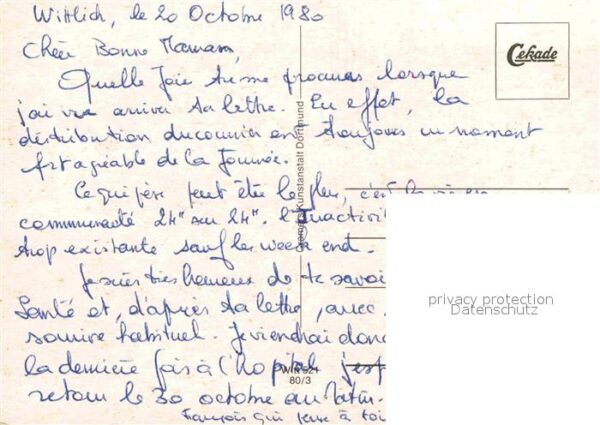 Wittlich, le 20 Octobre 1980
Cekade
Chère Bonne Maman,
Quelle Joie tu me procures lorsque
j'ai vu arriver ta lettre. En effet, la
distribution du courrier est toujours un moment
fort agréable de la Journée.
Ce qui pèse peut être le plus, c'est la vie en
communauté 24H sur 24H. l'Inactivi
trop existante sauf les week end.
Je suis très heureux de te savoi
Santé et, d'après ta lettre, avec
sourire habituel. Je viendrai donc
la dernière fois à l'hopital j'esp
retour le 30 octobre au matin.
François qui pense à toi
Kunstanstalt Dortmund
WIR 521
80/3
privacy protection
Datenschutz